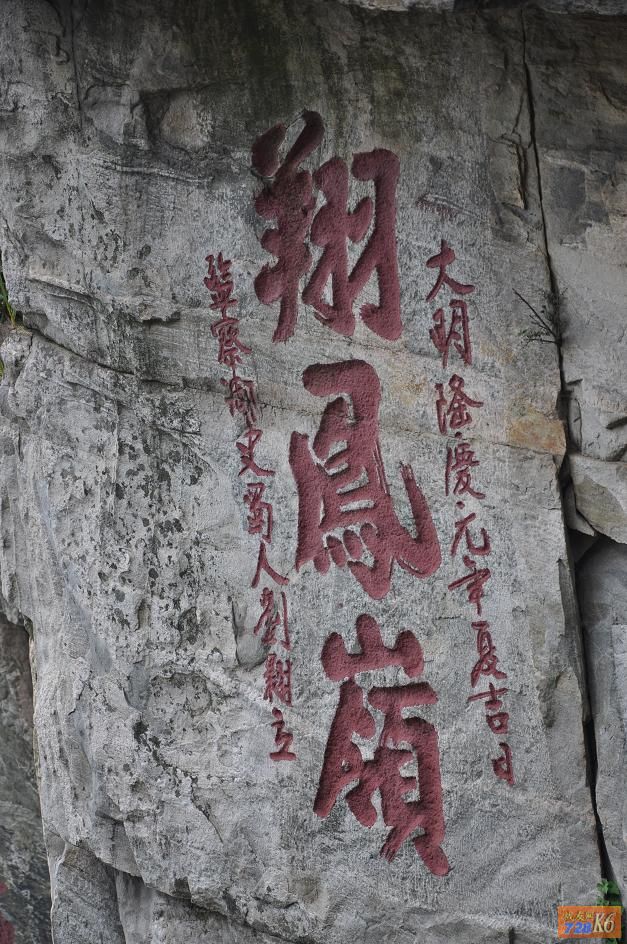 大明隆慶元年夏吉日
翔鳳嶺
監察御史蜀人劉翾立
728K6